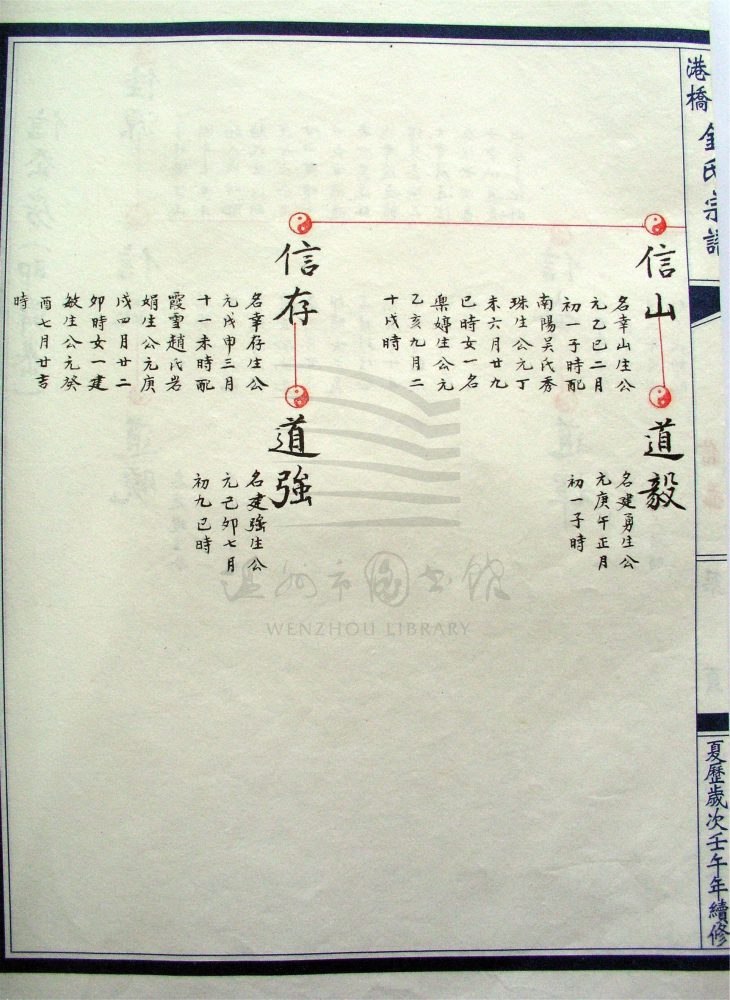 港橋 金氏宗譜
夏歷歲次壬午年續修
信山
名幸山生公
元乙巳二月
初一子時配
南陽吴氏秀
珠生公元丁
未六月廿九
巳時女一名
樂婷生公元
乙亥九月二
十戌時
道毅
名建勇生公
元庚午正月
初一子時
信存
名幸存生公
元戊申三月
十一未時配
霞雪趙氏岩
娟生公元庚
戌四月廿二
卯時女一建
敏生公元癸
酉七月廿吉
時
道強
名建强生公
元己卯七月
初九巳時
温州市图书館
WENZHOU LIBRARY